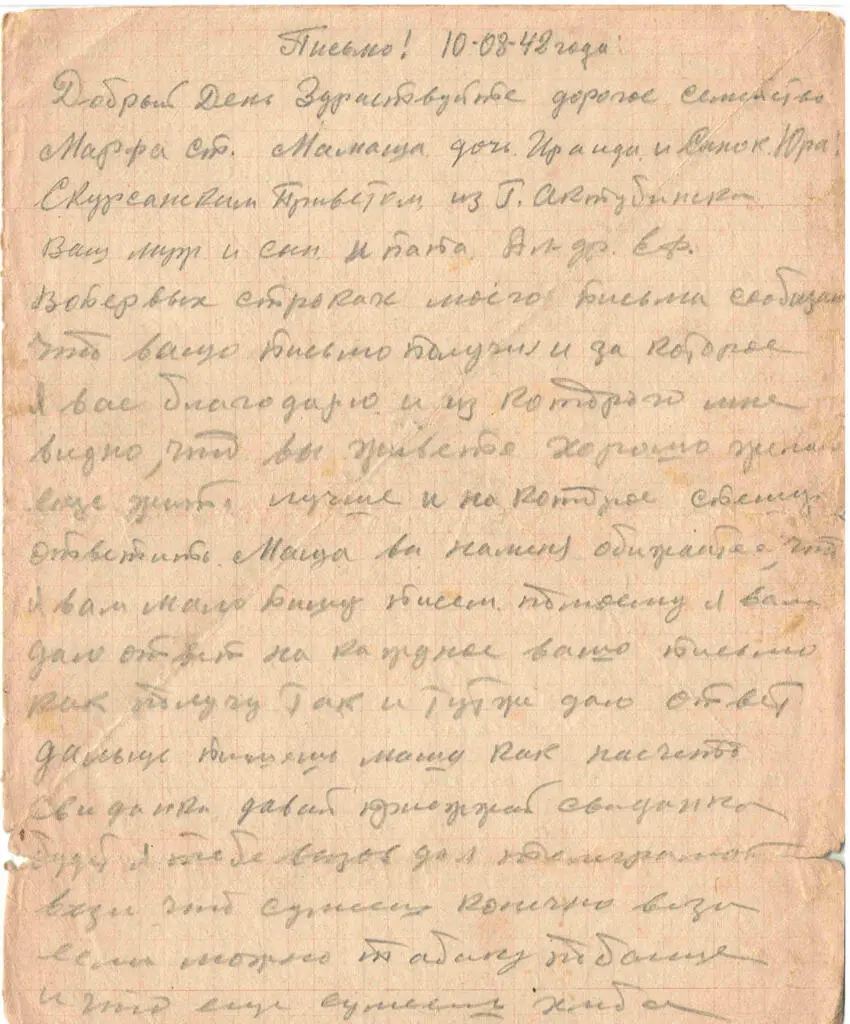 Письмо! 10-08-42 года:
Добрый День Здраствуйте дорогое семейство
Марфа ст. Мамаша дочь Ираида и Сынок Юра!
Скурсанским Приветом из Г. Актубинска
ваш муж и сын и папа Ал-др. Еф.
Вопервых строках моего письма сообщаю
что вашо письмо получил и за которое
я вас благодарю и из которого мне
видно, что вы живете хорошо желаю
еще жить лучше и на которое
ответить. Маша вы наменя обижаетес, что
я вам мало пишу писем. помоему я вам
даю ответ на каждное вашо письмо
как получу так и тутже даю ответ
дальше пишешь маша как насчето
свиданка давай приежжай свиданка
будет я тебе вызов дал телеграмой
вези что сумееш конечно вези
если можно табаку побольще
и что еще сумееш хлеба